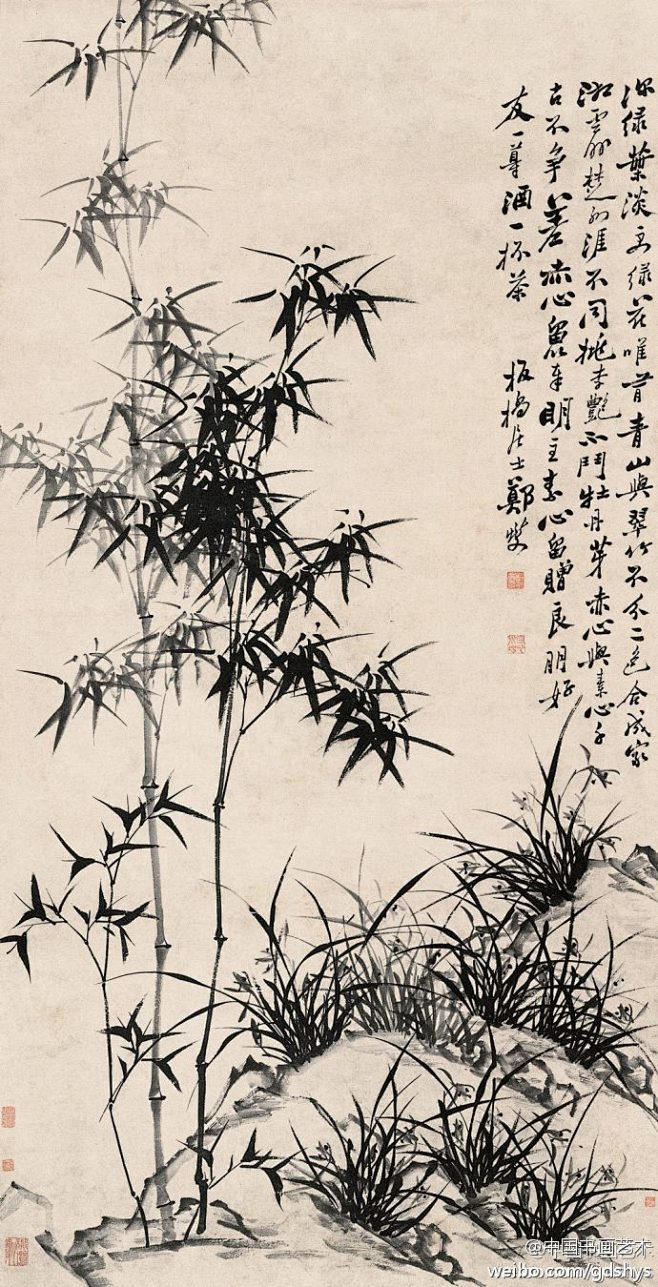 深绿葉淡束绿花唯首青山與翠竹不分二色合成家
湘雲斜楚水涯不同桃李艷不鬥牡丹芽赤心與素心千
古不争差赤心留奉明主素心留贈良朋好
友一尊酒一杯茶
板橋居士鄭燮
@中国书画艺术
weibo.com/gdshys